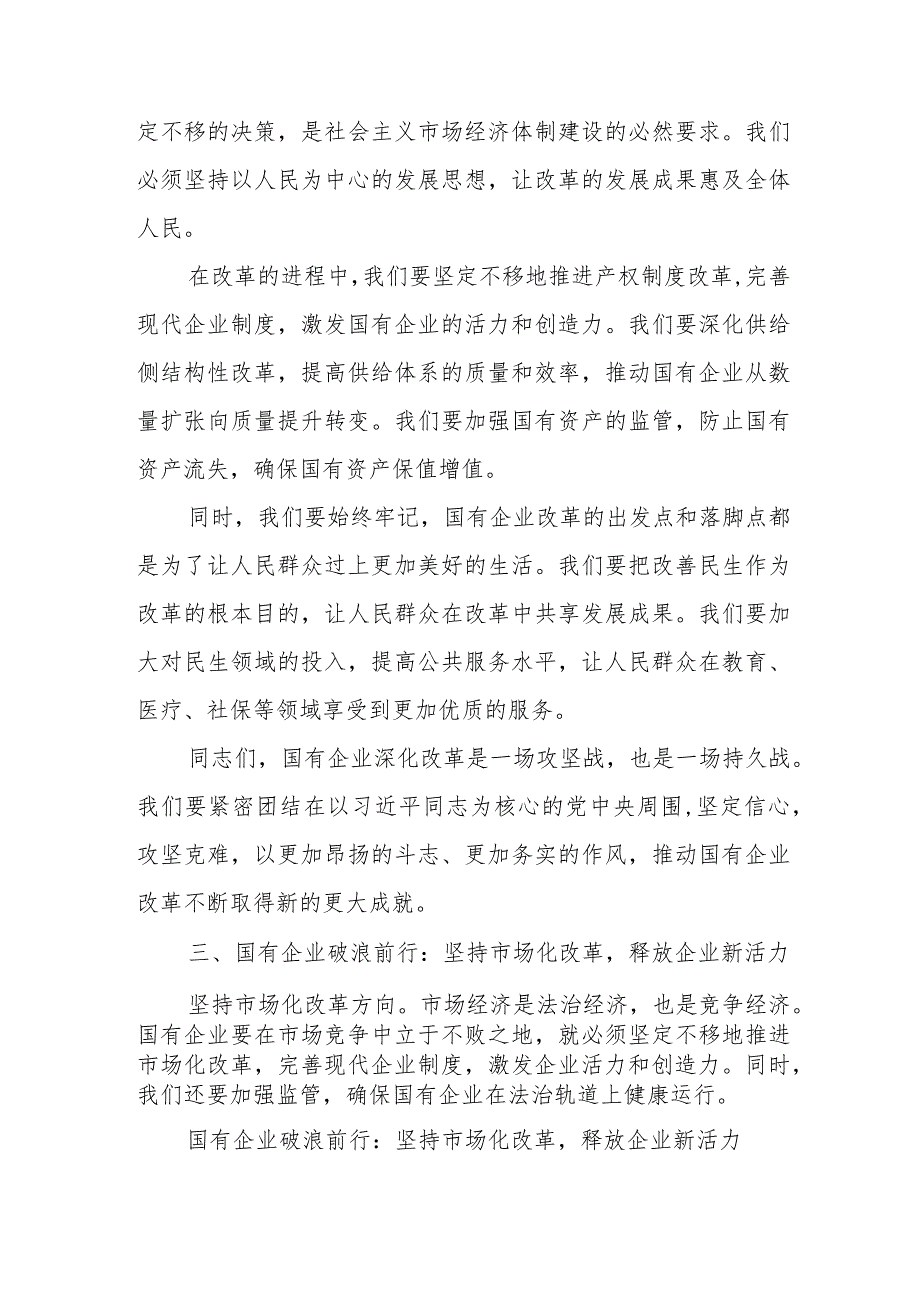 定不移的决策，是社会主义市场经济体制建设的必然要求。我们
必须坚持以人民为中心的发展思想，让改革的发展成果惠及全体
人民。
在改革的进程中，我们要坚定不移地推进产权制度改革,完善
现代企业制度，激发国有企业的活力和创造力。我们要深化供给
侧结构性改革，提高供给体系的质量和效率，推动国有企业从数
量扩张向质量提升转变。我们要加强国有资产的监管，防止国有
资产流失，确保国有资产保值增值。
同时，我们要始终牢记，国有企业改革的出发点和落脚点都
是为了让人民群众过上更加美好的生活。我们要把改善民生作为
改革的根本目的，让人民群众在改革中共享发展成果。我们要加
大对民生领域的投入，提高公共服务水平，让人民群众在教育、
医疗、社保等领域享受到更加优质的服务。
同志们，国有企业深化改革是一场攻坚战，也是一场持久战。
我们要紧密团结在以习近平同志为核心的党中央周围,坚定信心，
攻坚克难，以更加昂扬的斗志、更加务实的作风，推动国有企业
改革不断取得新的更大成就。
三、国有企业破浪前行：坚持市场化改革，释放企业新活力
坚持市场化改革方向。市场经济是法治经济，也是竞争经济。
国有企业要在市场竞争中立于不败之地，就必须坚定不移地推进
市场化改革，完善现代企业制度，激发企业活力和创造力。同时，
我们还要加强监管，确保国有企业在法治轨道上健康运行。
国有企业破浪前行：坚持市场化改革，释放企业新活力